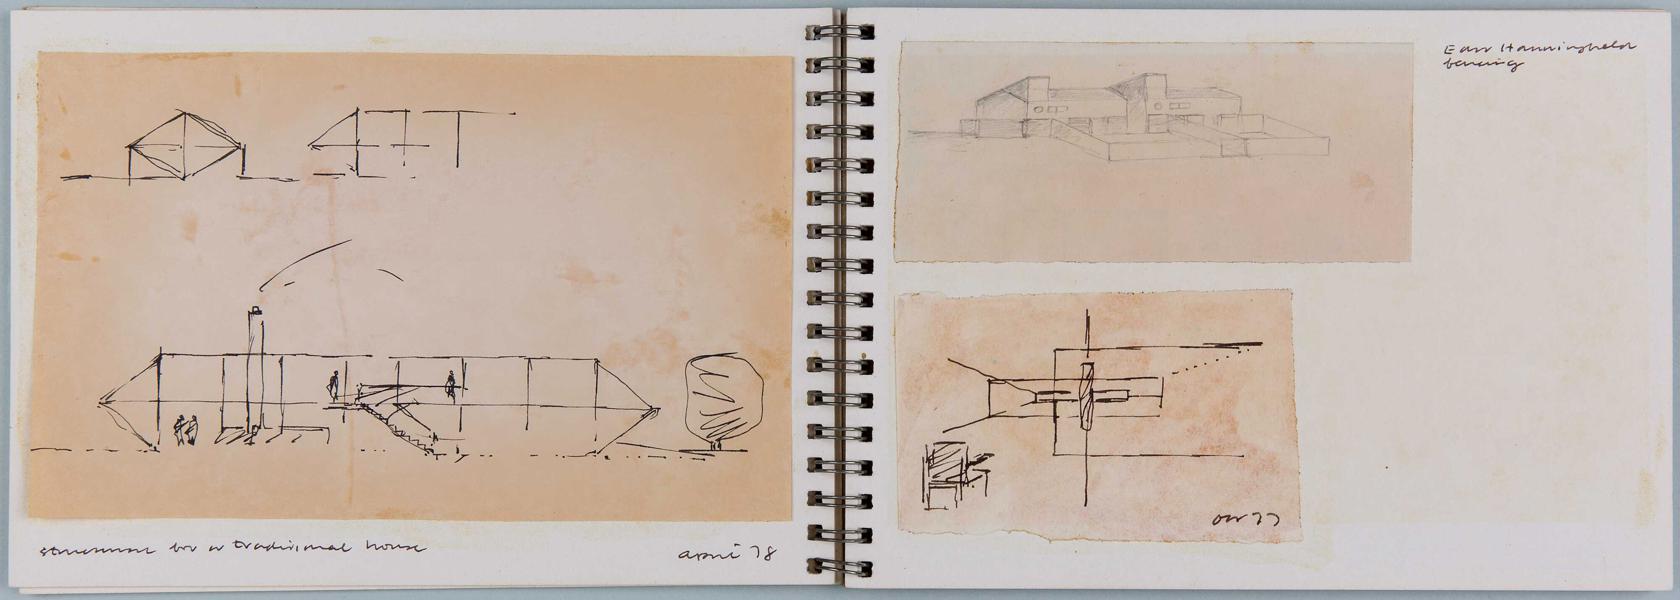 structure for a traditional house
april 78
East Hanningfield
housing
Oct 77